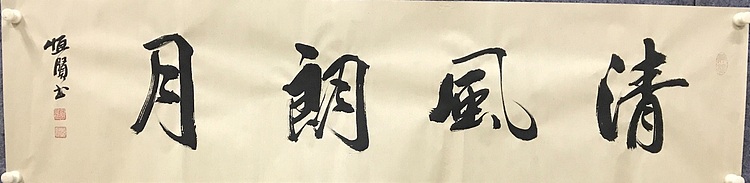 清風朗月
恒賢书